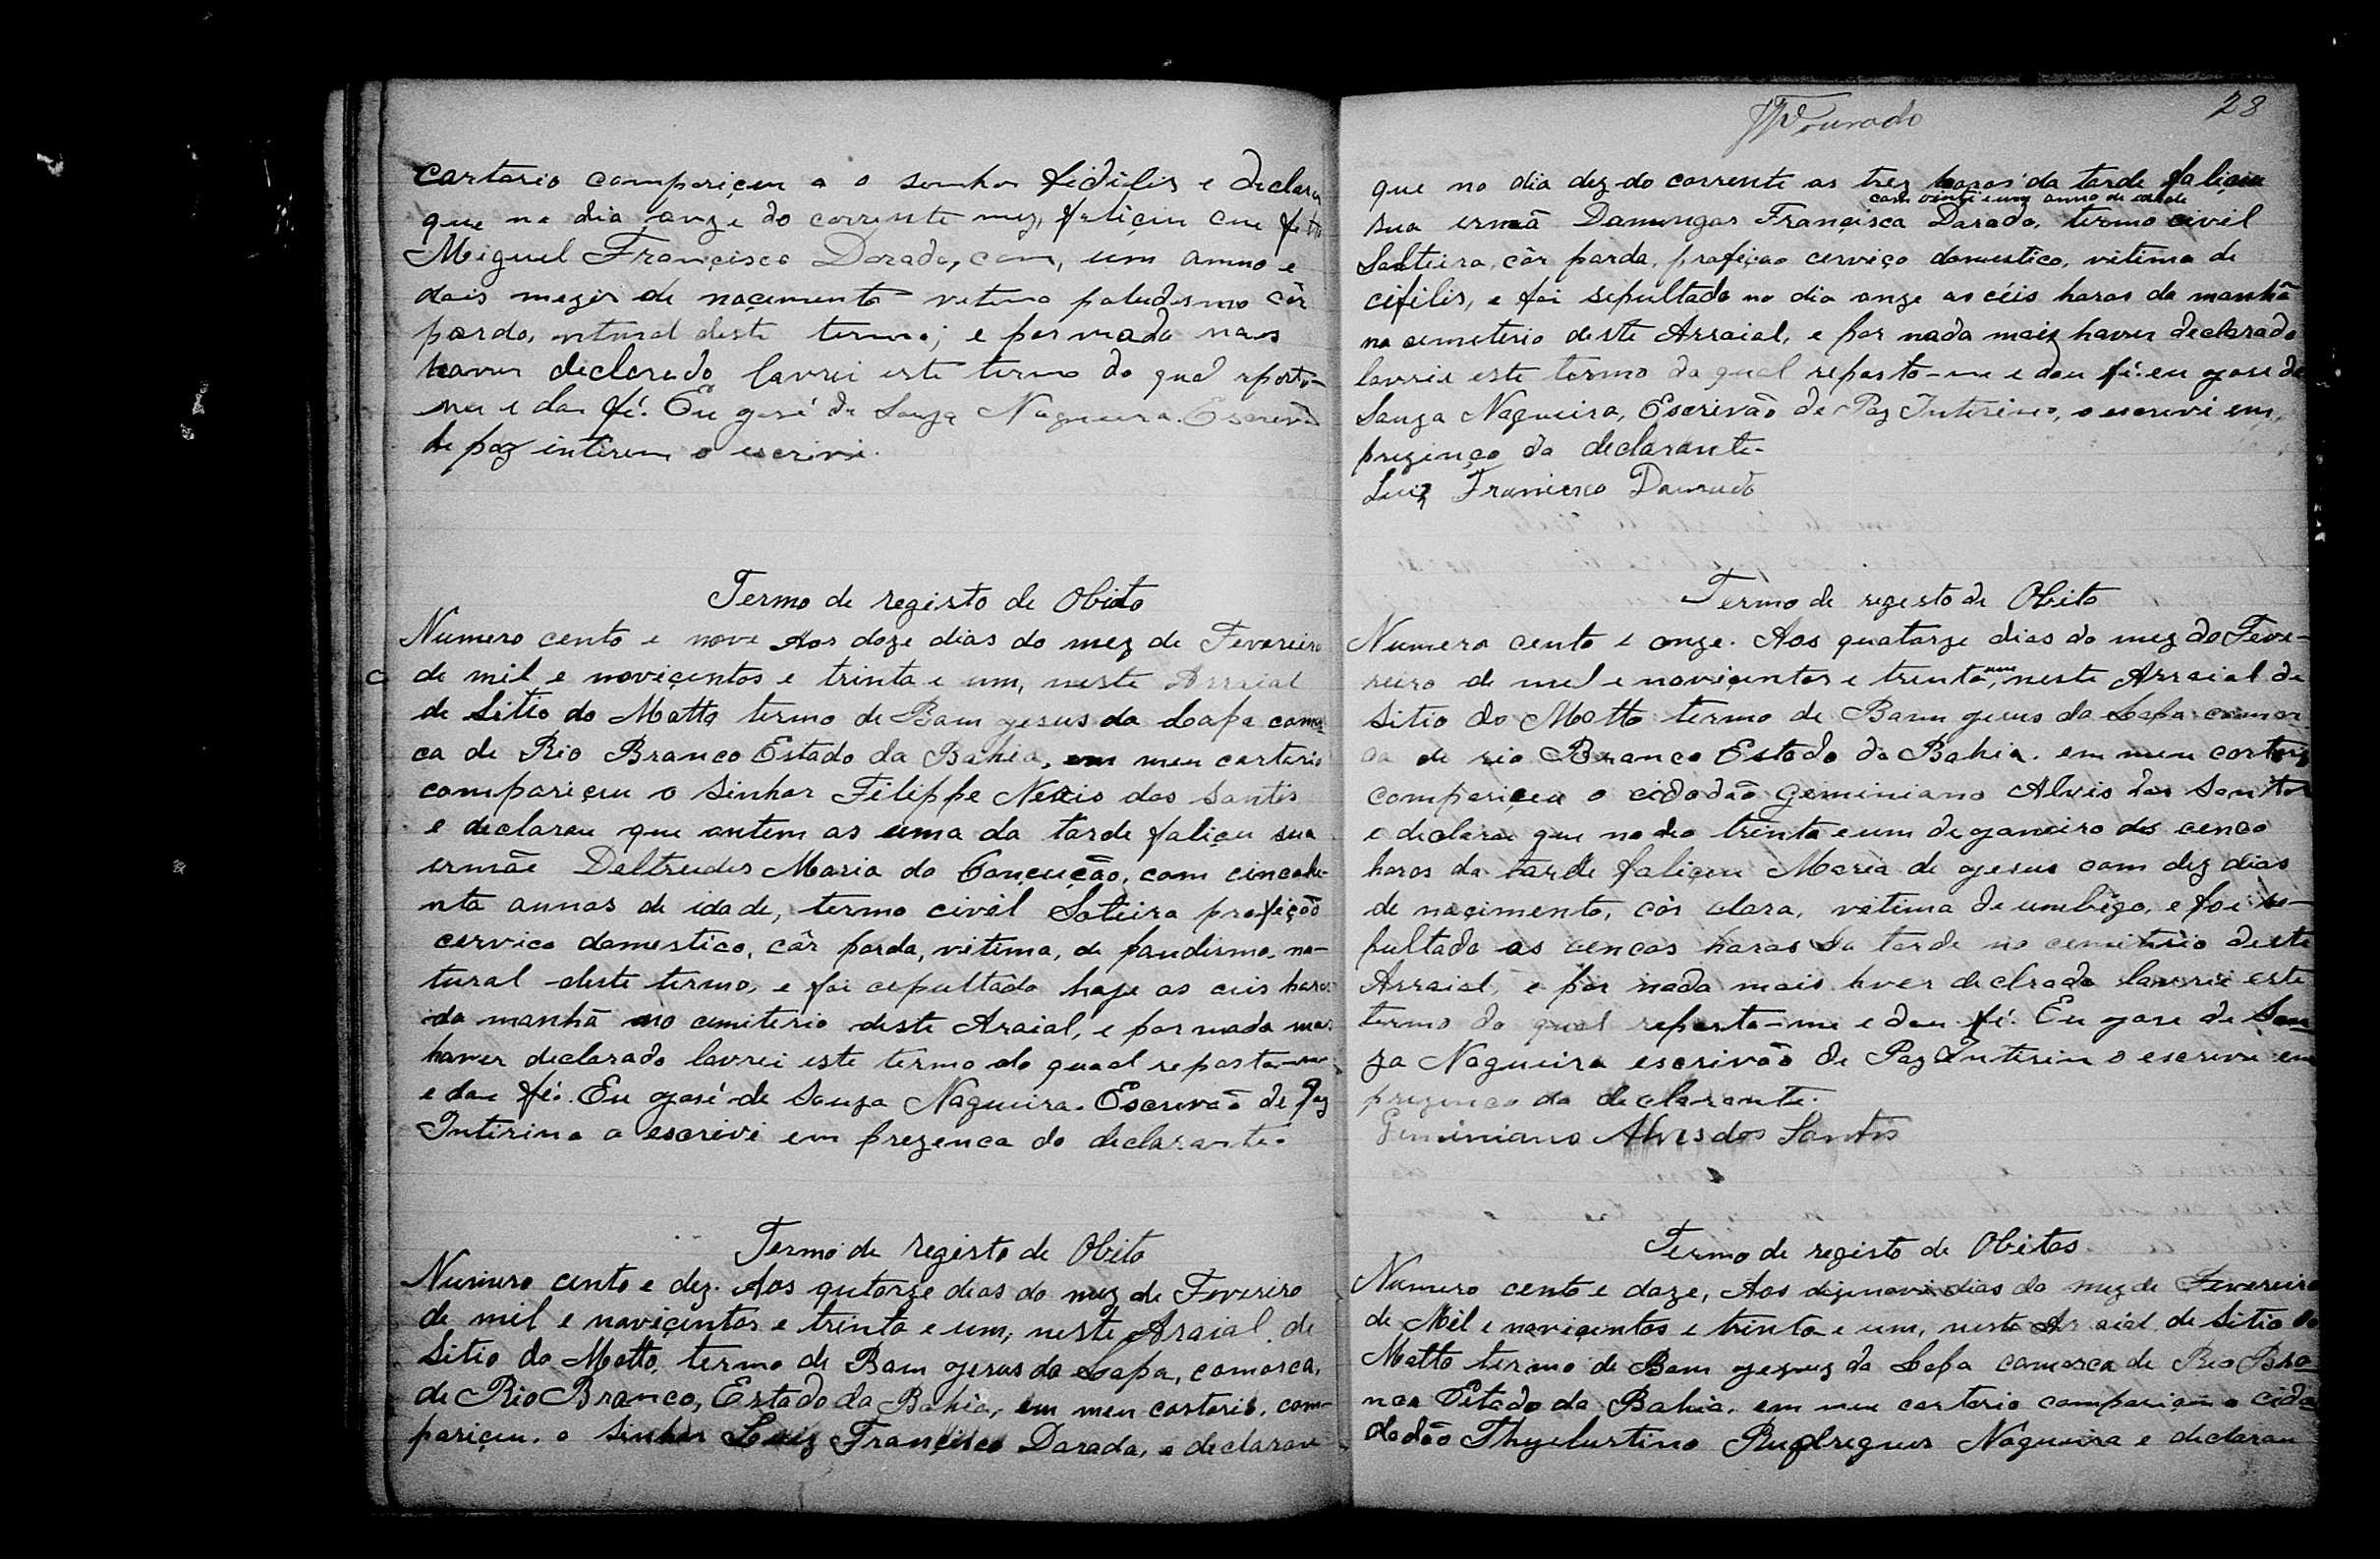 cartorio compariçeu a o senhor fidelis e declarou
que no dia onze do corrente mez, faliçeu
Miguel Françisco Dorado, com, um anno e
dois mezes de naçimento vitima paludismo côr
parda, natural deste termo; e por nada mais
haver declarado lavrei este termo do qual reporto-
me e dou fé. Eu gosé de Souza Nogueira. Escrivão
de paz interino o escrivi.
Termo de registo de Obito
Numero cento e nove Aos doze dias do mez de Fevereiro
de mil e noviçentos e trinta e um, neste Arraial
de Sitio do Matto termo de Bom gesus da Lapa comar
ca de Rio Branco Estado da Bahia, em meu cartorio
compariçeu o Sinhor Filippe Nerio dos Santos
e declarou que ontem as uma da tarde faliçeu sua
irmãe Deltrudes Maria da Conçeição, com cincohe-
nta annos de idade, termo civil Solteira profeição
cerviço domestico, côr parda, vitima, de paudismo, na-
tural deste termo, e foi cepultado hoje as ceis horas
da manhã no cemiterio deste Araial, e por nada mais
haver declarado lavrei este termo do qual reporto-me
e dou fé. Eu gosé de Souza Nogueira. Escrivão de Paz
Intirino o escrivi em prezenca do declarante.
Termo de registo de Obito
Numero cento e dez. Aos qutorze dias do mez de Fevreiro
de mil e noviçentos e trinta e um, neste Araial de
Sitio do Matto, termo de Bom gesus da Lapa, comarca,
de Rio Branco, Estado da Bahia, em meu cartorio, com-
pariçeu. o Sinhor Luiz Françisco Dorado, e declarou
Dourado
28
que no dia dez do corrente as trez horas da tarde faliçeu
com vinti e um anno de idade
sua irmã Domingas Françisca Dorado, termo civil
Solteira, côr parda, profiçao cerviço domestico, vitima de
cifilis, e foi sepultado no dia onze as céis horas da manhã
no cemeterio deste Arraial, e por nada mais haver declarado
lavrei este termo do qual reporto-me e dou fé: eu gose de
Souza Nogueira, Escrivão de Paz Interino, o escrevi em
prezença do declarante-
Luiz Francisco Dourado
Termo de registo de Obito
Numero cento e onze. Aos quatorze dias do mez do Feve-
reiro de mil e noviçentos e trenta, um neste Arraial de
Sitio do Motto termo de Bom gesus da Lapa comar
ca de rio Branco Estado da Bahia. em meu cartorio
compariceu o cidadão Geminiano Alvis dos Santos
e declarou que no dia trinta e um de ganeiro as cenco
horas da tarde faliçeu Maria de gesus com dez dias
de naçimento, côr clara, vitima de umbigo, e foi se-
pultado as cencos horas da tarde no cemiterio deste
Arraial, e por nada mais hver declrado lavrei este
termo do qual reporto-me e dou fé. Eu gose de Sou
za Nogueira escrivão de Paz Interin o escrevi em
prezença do declarante.
Geminiano Alves dos Santos
Termo de registo de Obitos
Numero cento e doze, Aos dizenove dias do mez de Fevereiro
de Mil e noviçentos e trinta e um, neste Arraial de Sitio do
Matto termo de Bom gezus da Lapa comarca de Rio Bra
nco Estado da Bahia. em meu cartorio compariçeu o cida
dadão Rugdregues Nogueira e declarou